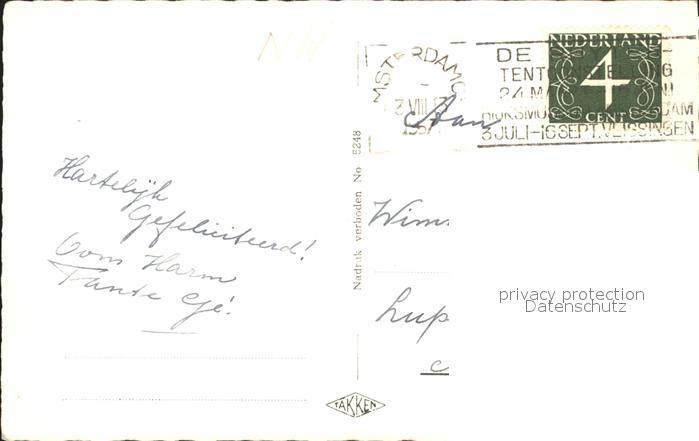 NH
MSTERDAM
3 VIII
195
DE
24 M
RIJKSMU DAM
3 JULI-16 SEPT. VLISSINGEN
NEDERLAND
4
CENT
Aan
Hartelijk
Gefeliciteerd!
Oom Harm
Tante Gé!
Wim
Lup
Nadruk verboden No 5248
TAKKEN
privacy protection
Datenschutz